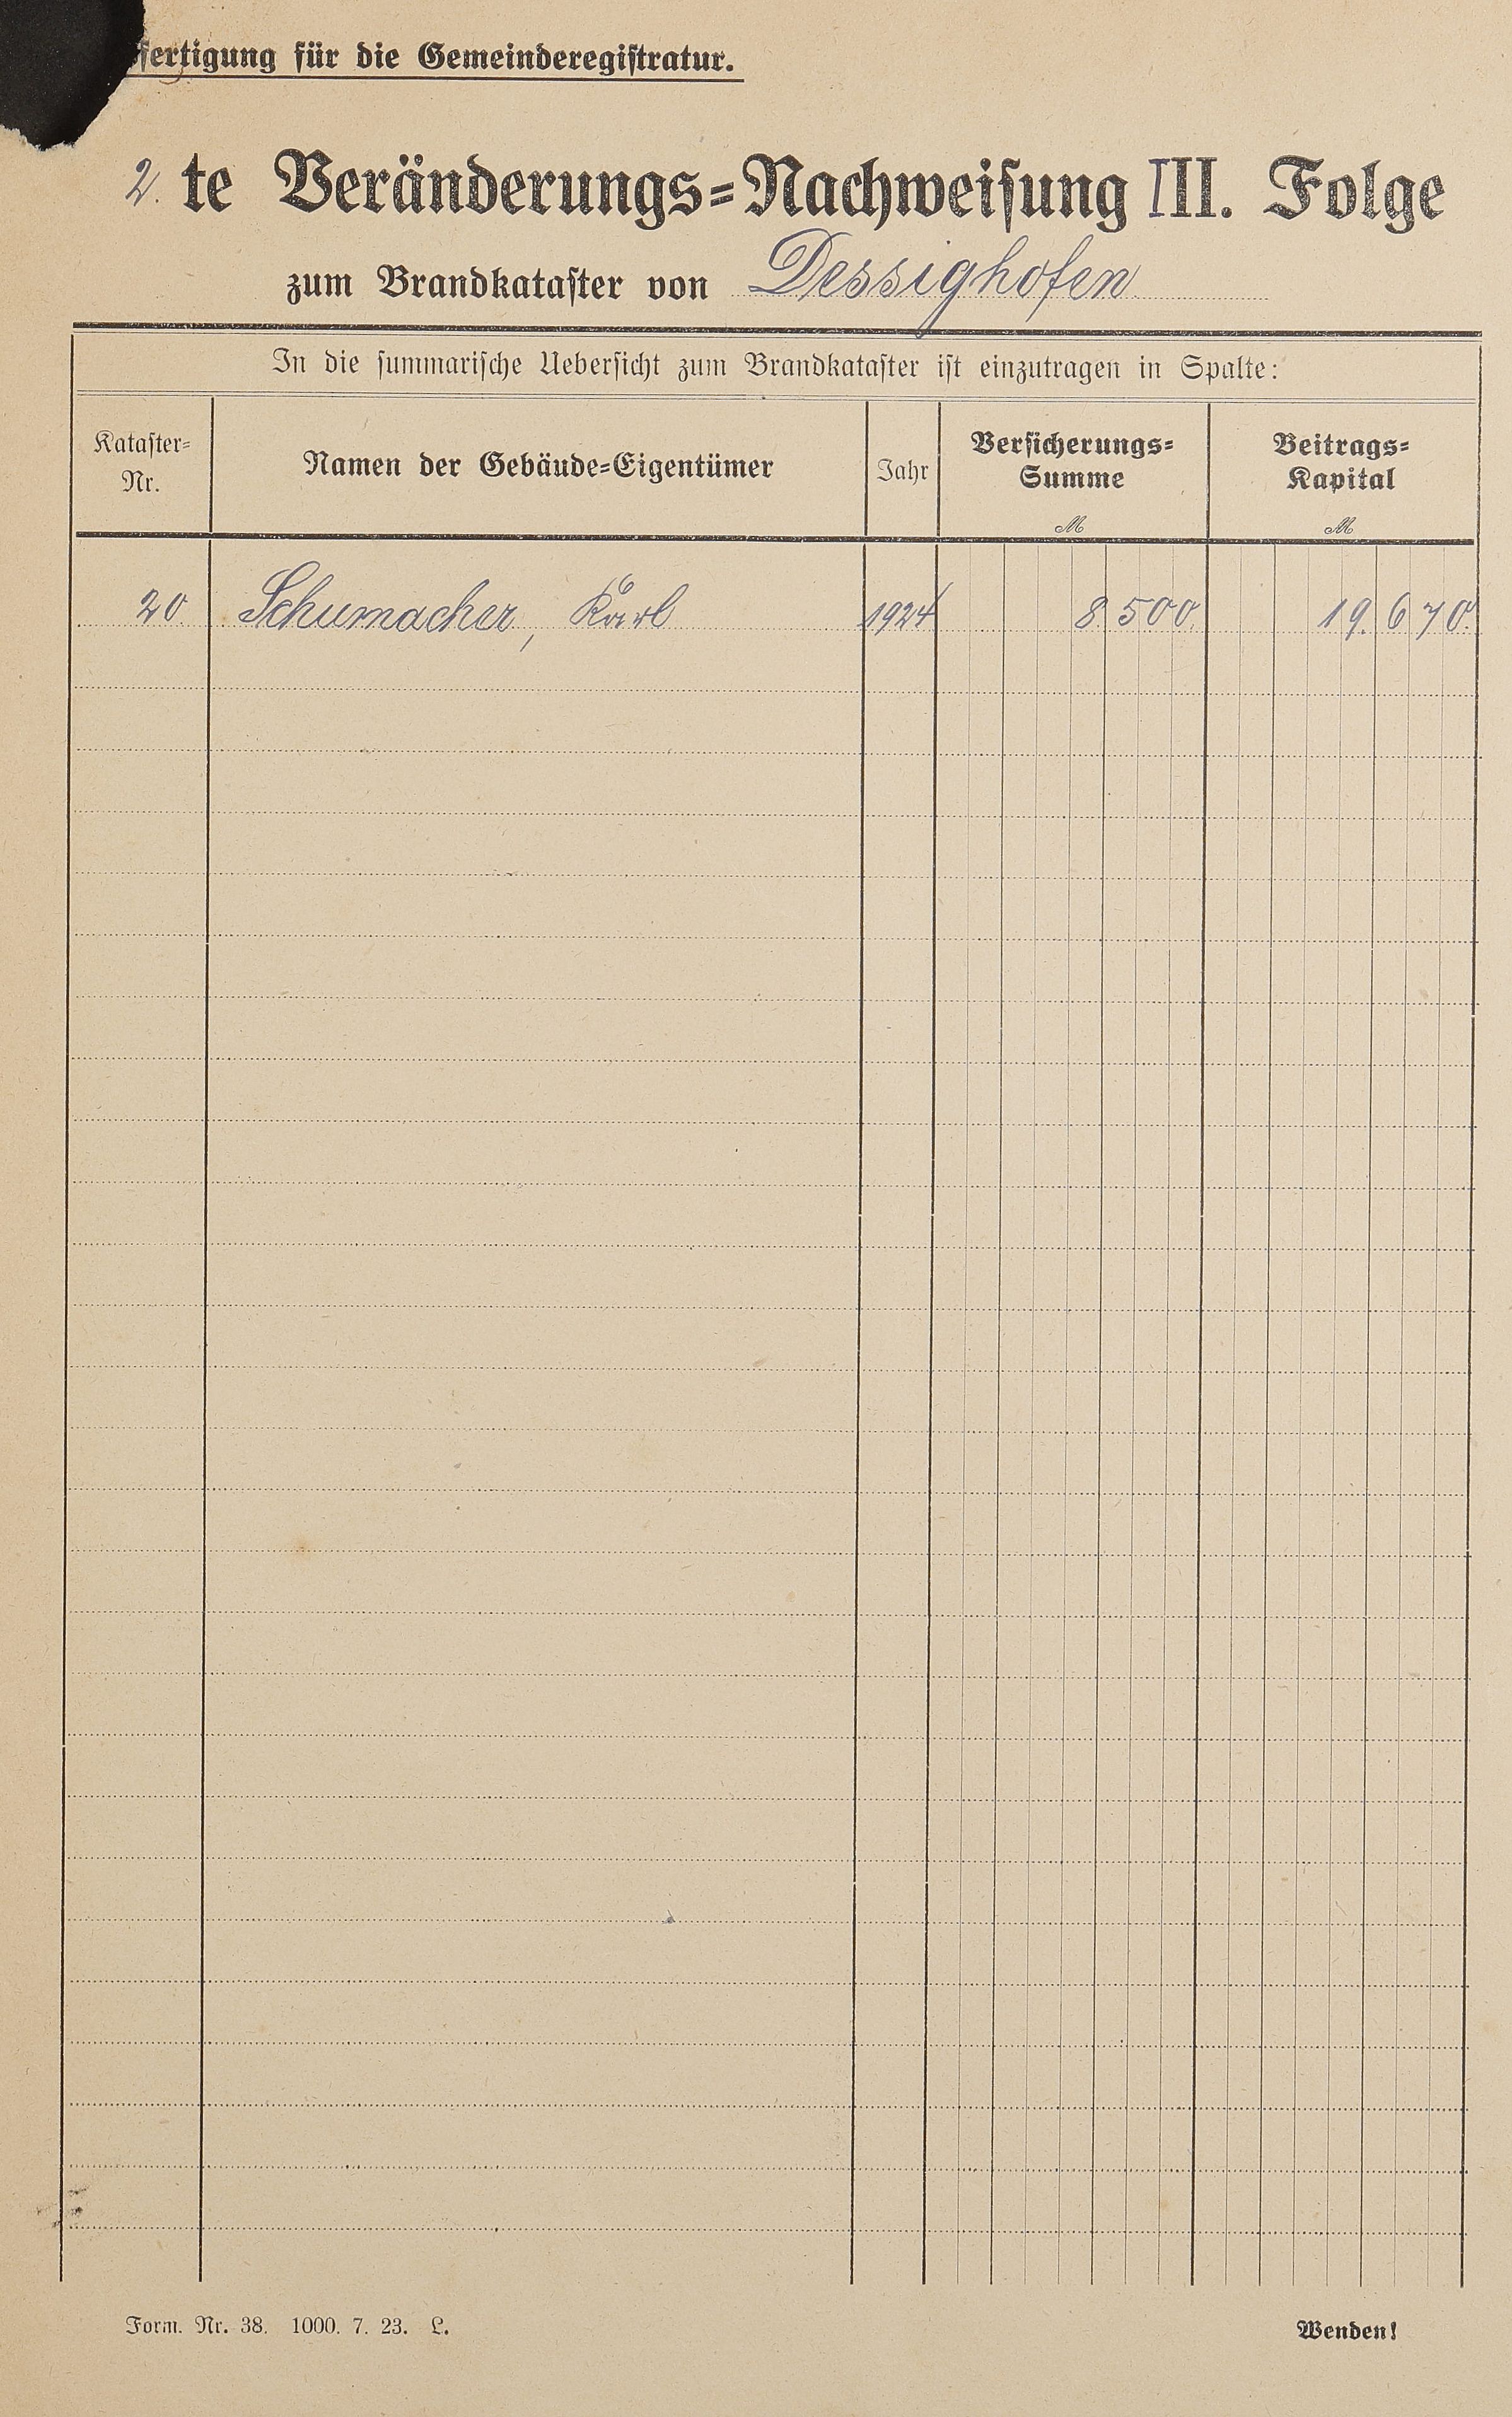 fertigung für die Gemeinderegistratur.
2. te Veränderungs=Nachweisung III. Folge
zum Brandkataster von Dessighofen
In die summarische Uebersicht zum Brandkataster ist einzutragen in Spalte:
Kataster=
Nr.
Namen der Gebäude=Eigentümer
Jahr
Versicherungs=
Summe
M
Beitrags=
Kapital
M
20 Schumacher, Karl 1924 8 500. 19. 670.
Form. Nr. 38. 1000. 7. 23. L.
Wenden!